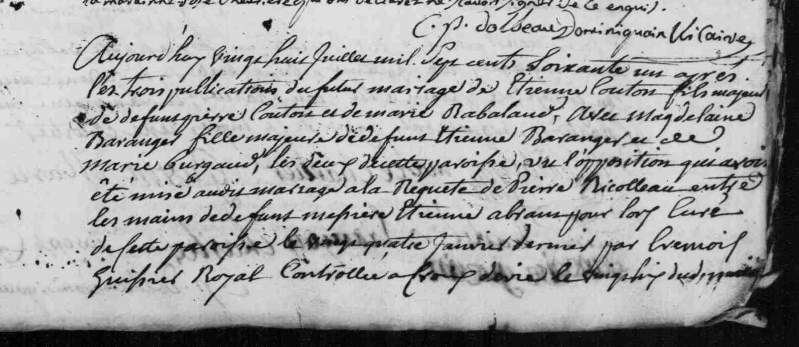 la marainne
C. p. dolbeau Dominiquain Vicaire
Aujourd huy vingt huit Juillet mil Sept cents Soixante un apres
les trois publications du futur mariage de Etienne Couton fils majeur
de defunt pierre Couton et de marie Rabalaud, Avec magdelaine
Baranger fille majeure de defunt Etienne Baranger et de
marie burgaud, les deux de cette paroisse, vu l'opposition qui avoit
été mise audit mariage a la Requete de Pierre Ricolleau entre
les mains de defunt messire Etienne abram pour lors Curé
de Cette paroisse le vingt quatre Janvier dernier par Cremois
huissier Royal Controllé a Croix de vie le vingt six dud